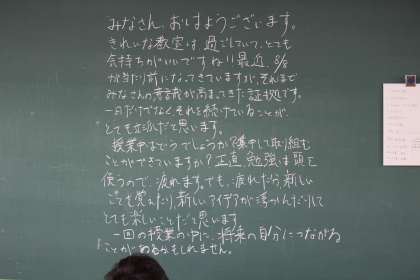 みなさん、おはようございます。
きれいな教室は過ごしていて、とても
気持ちがいいですね!!最近、8/8
が当たり前になってきていますが、それまで
みなさんの意識が高まってきた証拠です。
一日だけでなくそれを続けていることが、
とても立派だと思います。
授業中はどうでしょうか?集中して取り組む
ことができていますか?正直、勉強は頭を
使うので、疲れます。でも、疲れたら新しい
ことも覚えたり新しいアイデアが浮かんだりして
とても楽しいことだと思います。
一回の授業の中に、将来の自分につながる
ことがあるかもしれません。